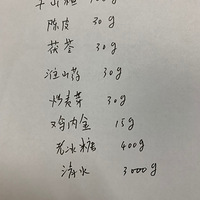 干山楂 100g
陈皮 30g
茯苓 30g
淮山药 30g
炒麦芽 30g
鸡内金 15g
老冰糖 400g
清水 3000g